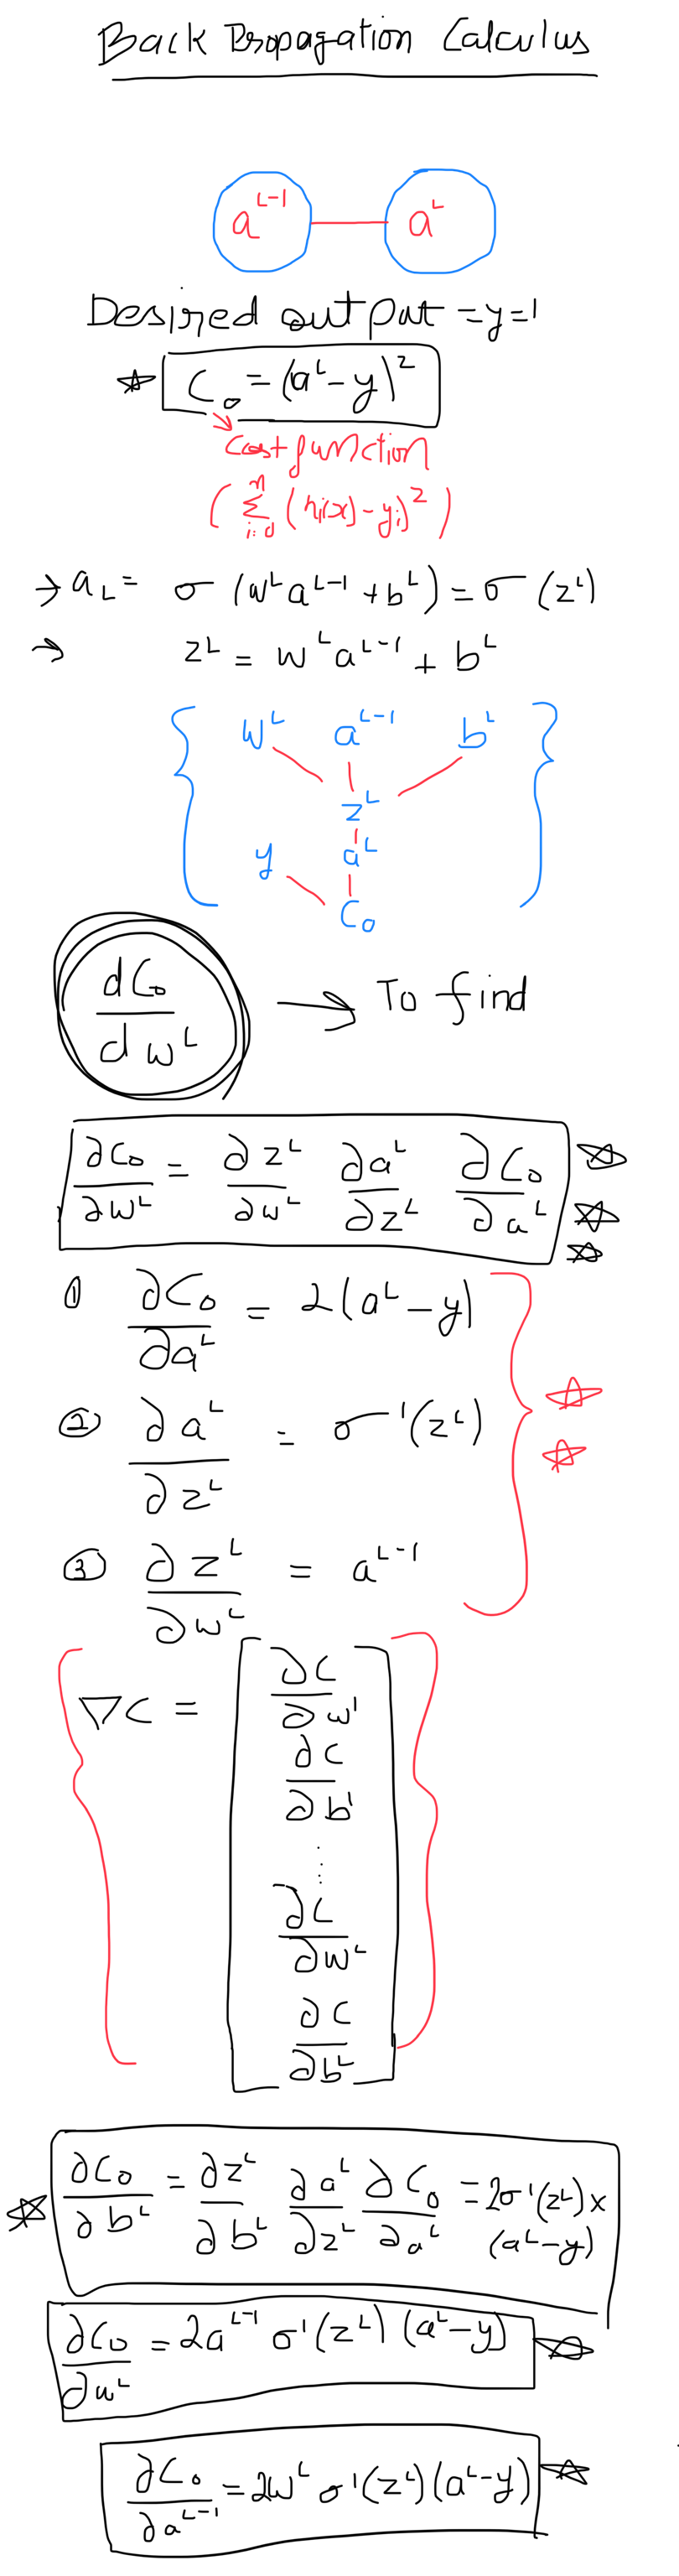 Back Propagation Calculus
a^{L-1} a^L
Desired output = y = 1
☆ C₀ = (a^L - y)²
Cost function
(∑_{i=0}^{n} (h_i(x) - y_i)²)
→ a_L = σ(w^L a^{L-1} + b^L) = σ(z^L)
→ z^L = w^L a^{L-1} + b^L
w^L a^{L-1} b^L
z^L
y a^L
C₀
dC₀/dw^L → To find
∂C₀/∂w^L = ∂z^L/∂w^L ∂a^L/∂z^L ∂C₀/∂a^L ☆☆☆
① ∂C₀/∂a^L = 2(a^L - y)
② ∂a^L/∂z^L = σ'(z^L) ☆☆
③ ∂z^L/∂w^L = a^{L-1}
∇C =
∂C/∂w¹
∂C/∂b¹
⋮
∂C/∂w^L
∂C/∂b^L
☆ ∂C₀/∂b^L = ∂z^L/∂b^L ∂a^L/∂z^L ∂C₀/∂a^L = 2σ'(z^L) ×
(a^L - y)
∂C₀/∂w^L = 2a^{L-1} σ'(z^L) (a^L - y) ☆
∂C₀/∂a^{L-1} = 2w^L σ'(z^L) (a^L - y) ☆